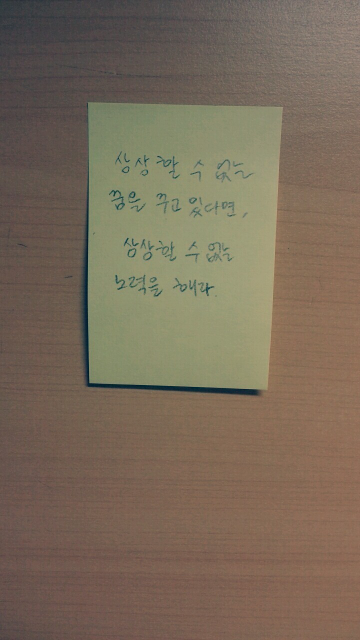 상상할 수 없는
꿈을 꾸고 있다면,
상상할 수 없는
노력을 해라.